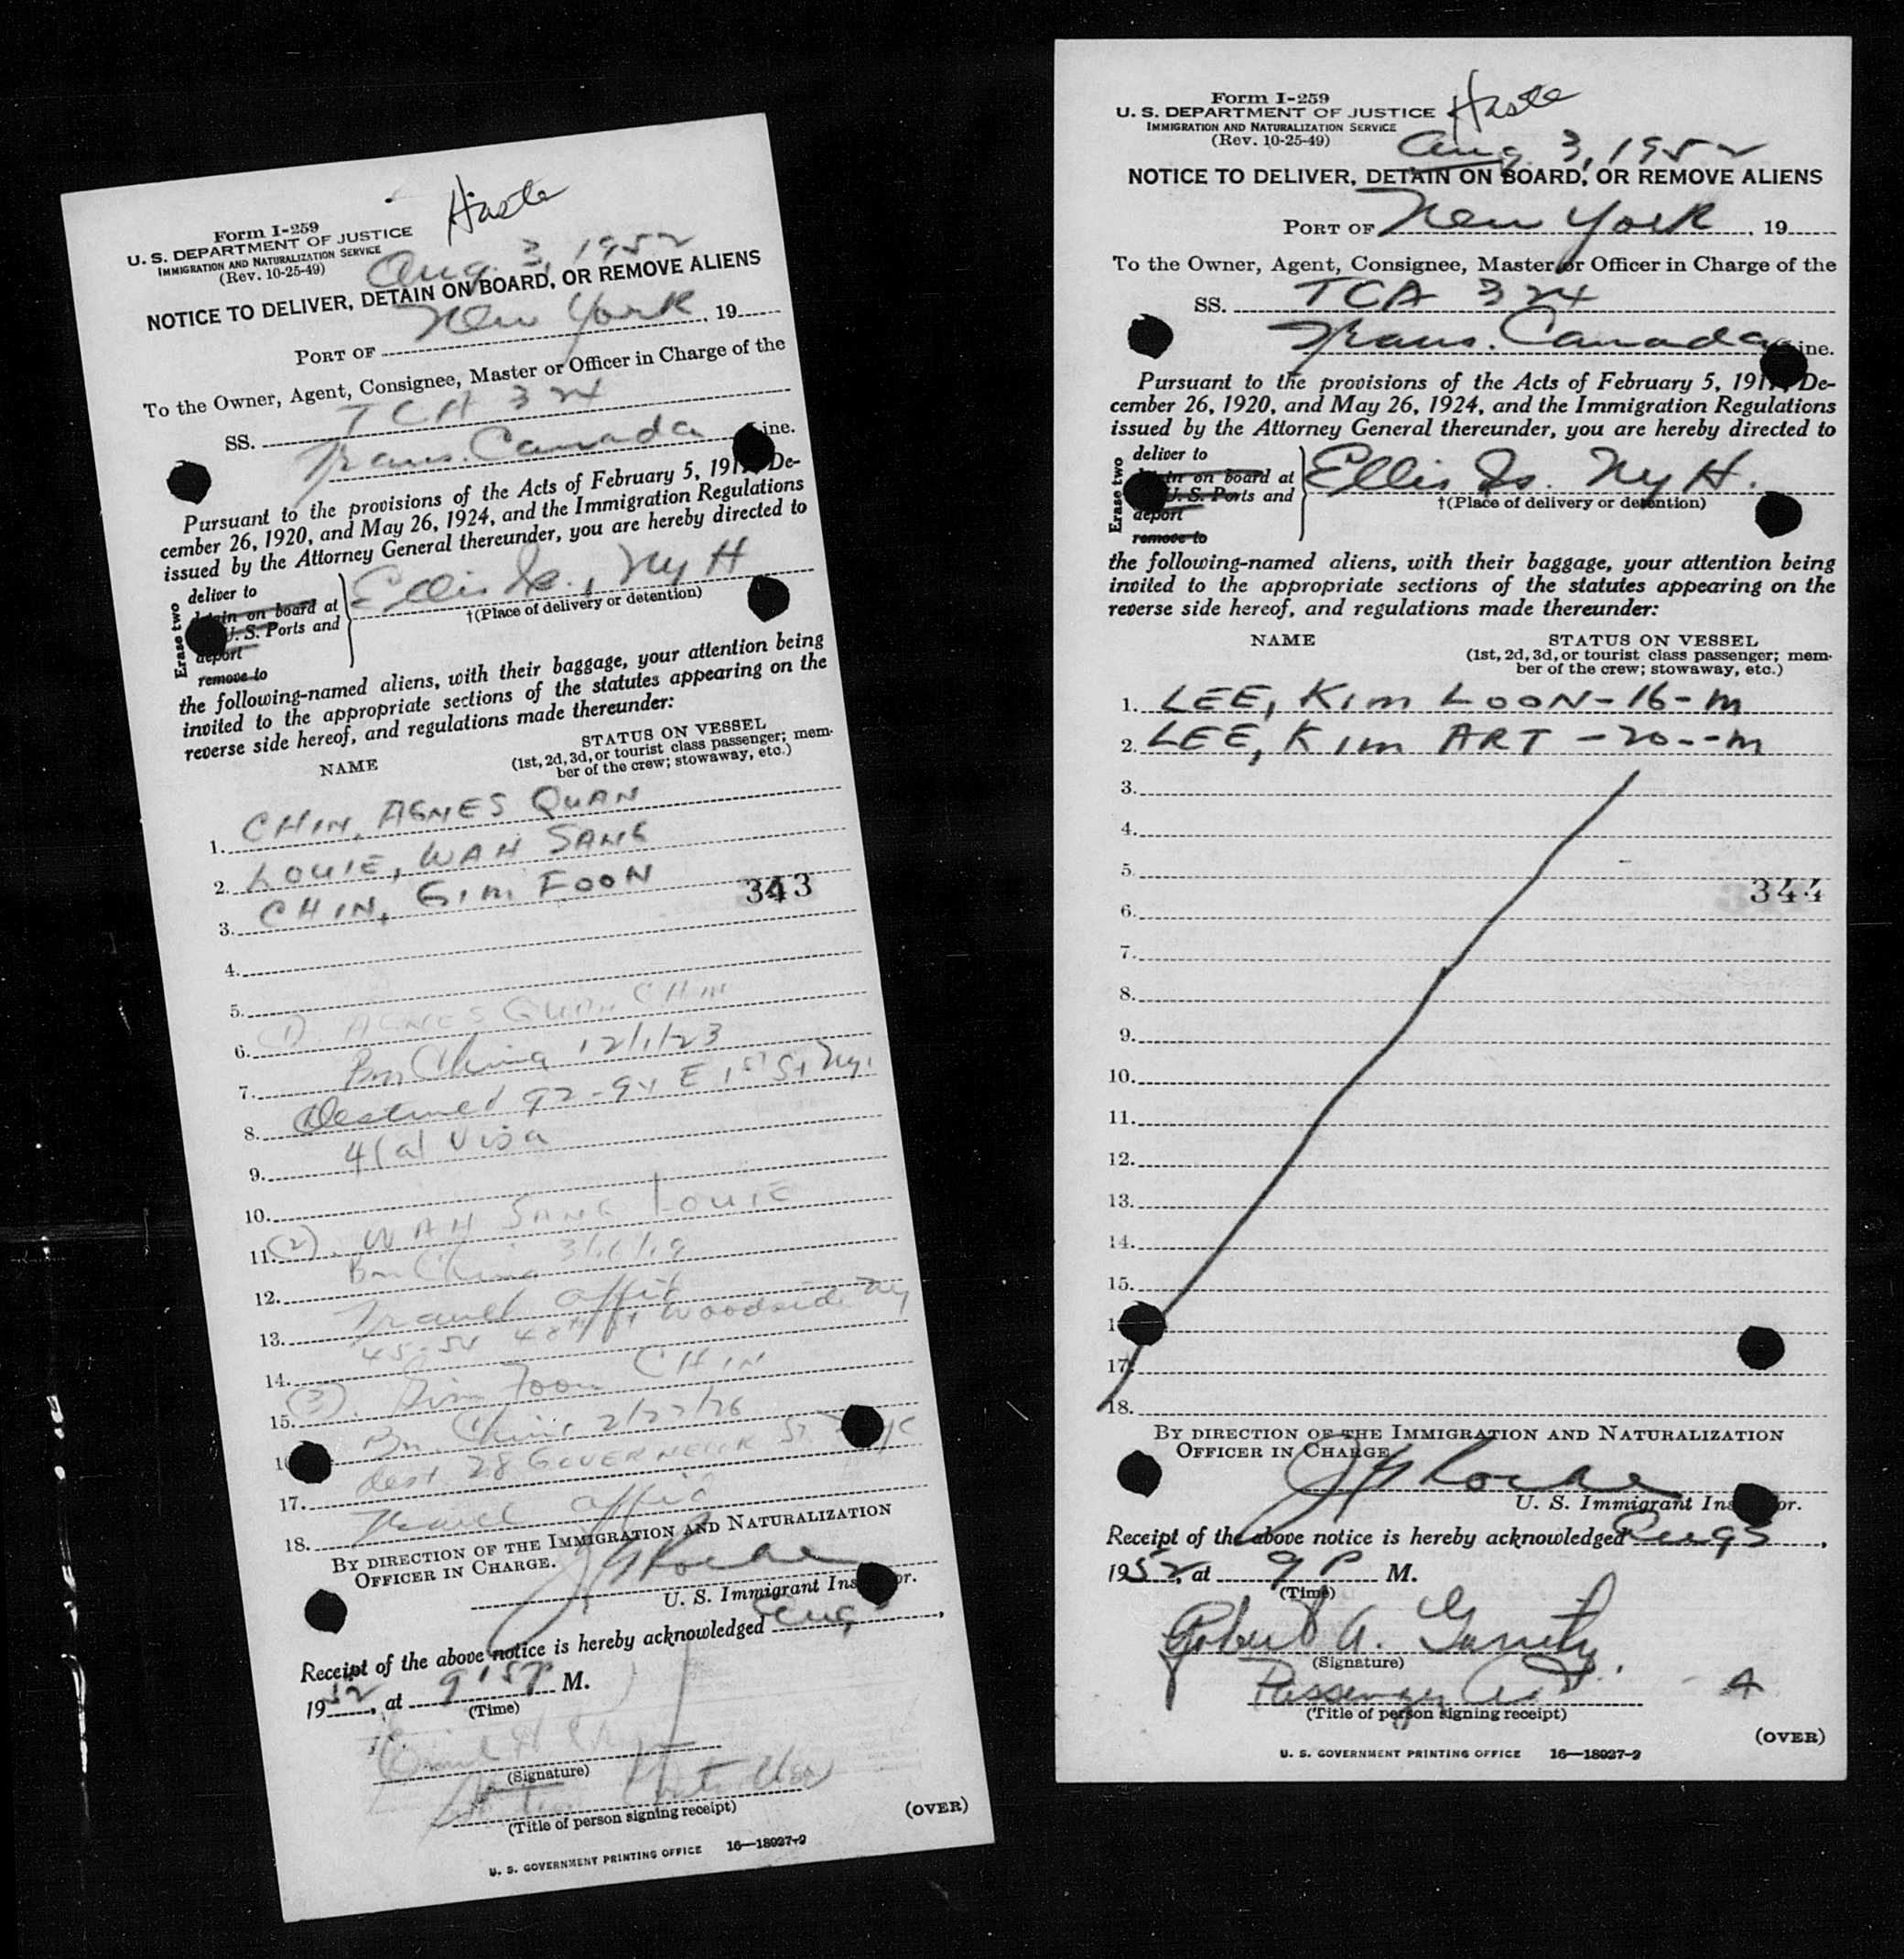 Form I-259
U. S. DEPARTMENT OF JUSTICE
IMMIGRATION AND NATURALIZATION SERVICE
(Rev. 10-25-49)
Haste
Aug. 3, 1952
NOTICE TO DELIVER, DETAIN ON BOARD, OR REMOVE ALIENS
PORT OF New York, 19
To the Owner, Agent, Consignee, Master or Officer in Charge of the
SS. TCA 324
Trans. Canada ine.
Pursuant to the provisions of the Acts of February 5, 191 De-
cember 26, 1920, and May 26, 1924, and the Immigration Regulations
issued by the Attorney General thereunder, you are hereby directed to
Erase two
deliver to
detain on board at
U. S. Ports and
deport
remove to
Ellis Is., NY H
†(Place of delivery or detention)
the following-named aliens, with their baggage, your attention being
invited to the appropriate sections of the statutes appearing on the
reverse side hereof, and regulations made thereunder:
NAME
STATUS ON VESSEL
(1st, 2d, 3d, or tourist class passenger; mem-
ber of the crew; stowaway, etc.)
1. CHIN, AGNES QUAN
2. LOUIE, WAH SANG
3. CHIN, GIM FOON
343
4.
5.
6. (1) AGNES QUAN CHIN
7. Bn China 12/1/23
8. Destined 92-94 E 1st St NY.
9. 4(a) Visa
10.
11. (2). WAH SANG LOUIE
12. Bn China
13. Travel affit
14. 45-54 48th St Woodside NY
15. (3). Gim Foon CHIN
16. Bn. China 2/27/26
17. dest 28 GOVERNEUR St NYC
18. Travel affid
BY DIRECTION OF THE IMMIGRATION AND NATURALIZATION
OFFICER IN CHARGE.
J G Roche
U. S. Immigrant Ins or.
Receipt of the above notice is hereby acknowledged Aug 3,
1952, at 9:15P M.
(Time)
(Signature)
(Title of person signing receipt)
(OVER)
U. S. GOVERNMENT PRINTING OFFICE 16—18027-2
Form I-259
U. S. DEPARTMENT OF JUSTICE
IMMIGRATION AND NATURALIZATION SERVICE
(Rev. 10-25-49)
Haste
Aug. 3, 1952
NOTICE TO DELIVER, DETAIN ON BOARD, OR REMOVE ALIENS
PORT OF New York, 19
To the Owner, Agent, Consignee, Master or Officer in Charge of the
SS. TCA 324
Trans. Canada ine.
Pursuant to the provisions of the Acts of February 5, 191 De-
cember 26, 1920, and May 26, 1924, and the Immigration Regulations
issued by the Attorney General thereunder, you are hereby directed to
Erase two
deliver to
detain on board at
U. S. Ports and
deport
remove to
Ellis Is. NY H.
†(Place of delivery or detention)
the following-named aliens, with their baggage, your attention being
invited to the appropriate sections of the statutes appearing on the
reverse side hereof, and regulations made thereunder:
NAME
STATUS ON VESSEL
(1st, 2d, 3d, or tourist class passenger; mem-
ber of the crew; stowaway, etc.)
1. LEE, KIM LOON-16-M
2. LEE, KIM ART -20--M
3.
4.
5.
344
6.
7.
8.
9.
10.
11.
12.
13.
14.
15.
1
17.
18.
BY DIRECTION OF THE IMMIGRATION AND NATURALIZATION
OFFICER IN CHARGE
J G Roche
U. S. Immigrant Ins or.
Receipt of the above notice is hereby acknowledged Aug 3,
1952, at 9 P M.
(Time)
Robert A.
(Signature)
Passenger Agt. A
(Title of person signing receipt)
(OVER)
U. S. GOVERNMENT PRINTING OFFICE 16—18027-2